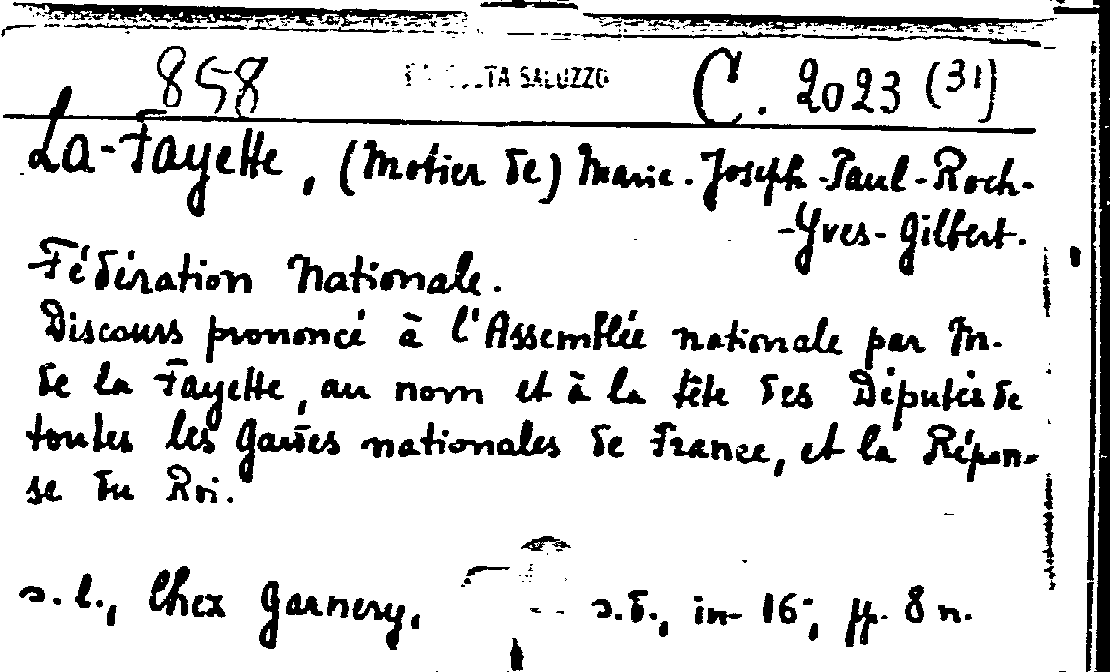 858 SALUZZO C. 2023 (31)
La-Fayette, (Motier de) Marie-Joseph-Paul-Roch-
-Yves-Gilbert.
Fédération Nationale.
Discours prononcé à l'Assemblée nationale par M.
de la Fayette, au nom et à la tête des Députés de
toutes les Gardes nationales de France, et la Répon-
se du Roi.
s.l., Chez Garnery, s.d., in-16°, ff. 8 n.